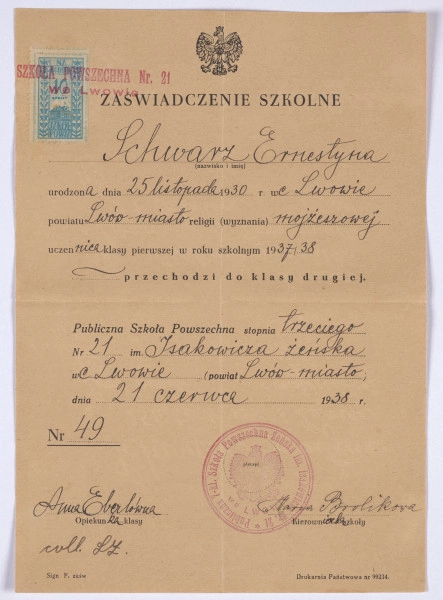 SZKOŁA POWSZECHNA Nr. 21
we Lwowie
ZAŚWIADCZENIE SZKOLNE
Schwarz Ernestyna
(nazwisko i imię)
urodzona dnia 25 listopada 1930 r. we Lwowie
powiatu Lwów-miasto religii (wyznania) mojżeszowej
uczennica klasy pierwszej w roku szkolnym 1937/38
przechodzi do klasy drugiej.
Publiczna Szkoła Powszechna stopnia trzeciego
Nr 21 im. Isakowicza żeńska
we Lwowie (powiat Lwów-miasto;
dnia 21 czerwca 1938 r.
Nr 49
Anna Eberlówna
Opiekunka klasy
Kierowniczka Szkoły
Sign P. zaśw
Drukarnia Państwowa nr 90214.